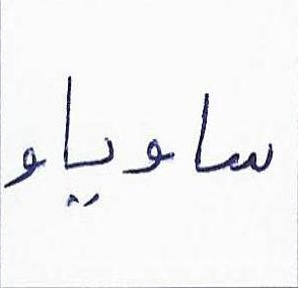 ساوياو